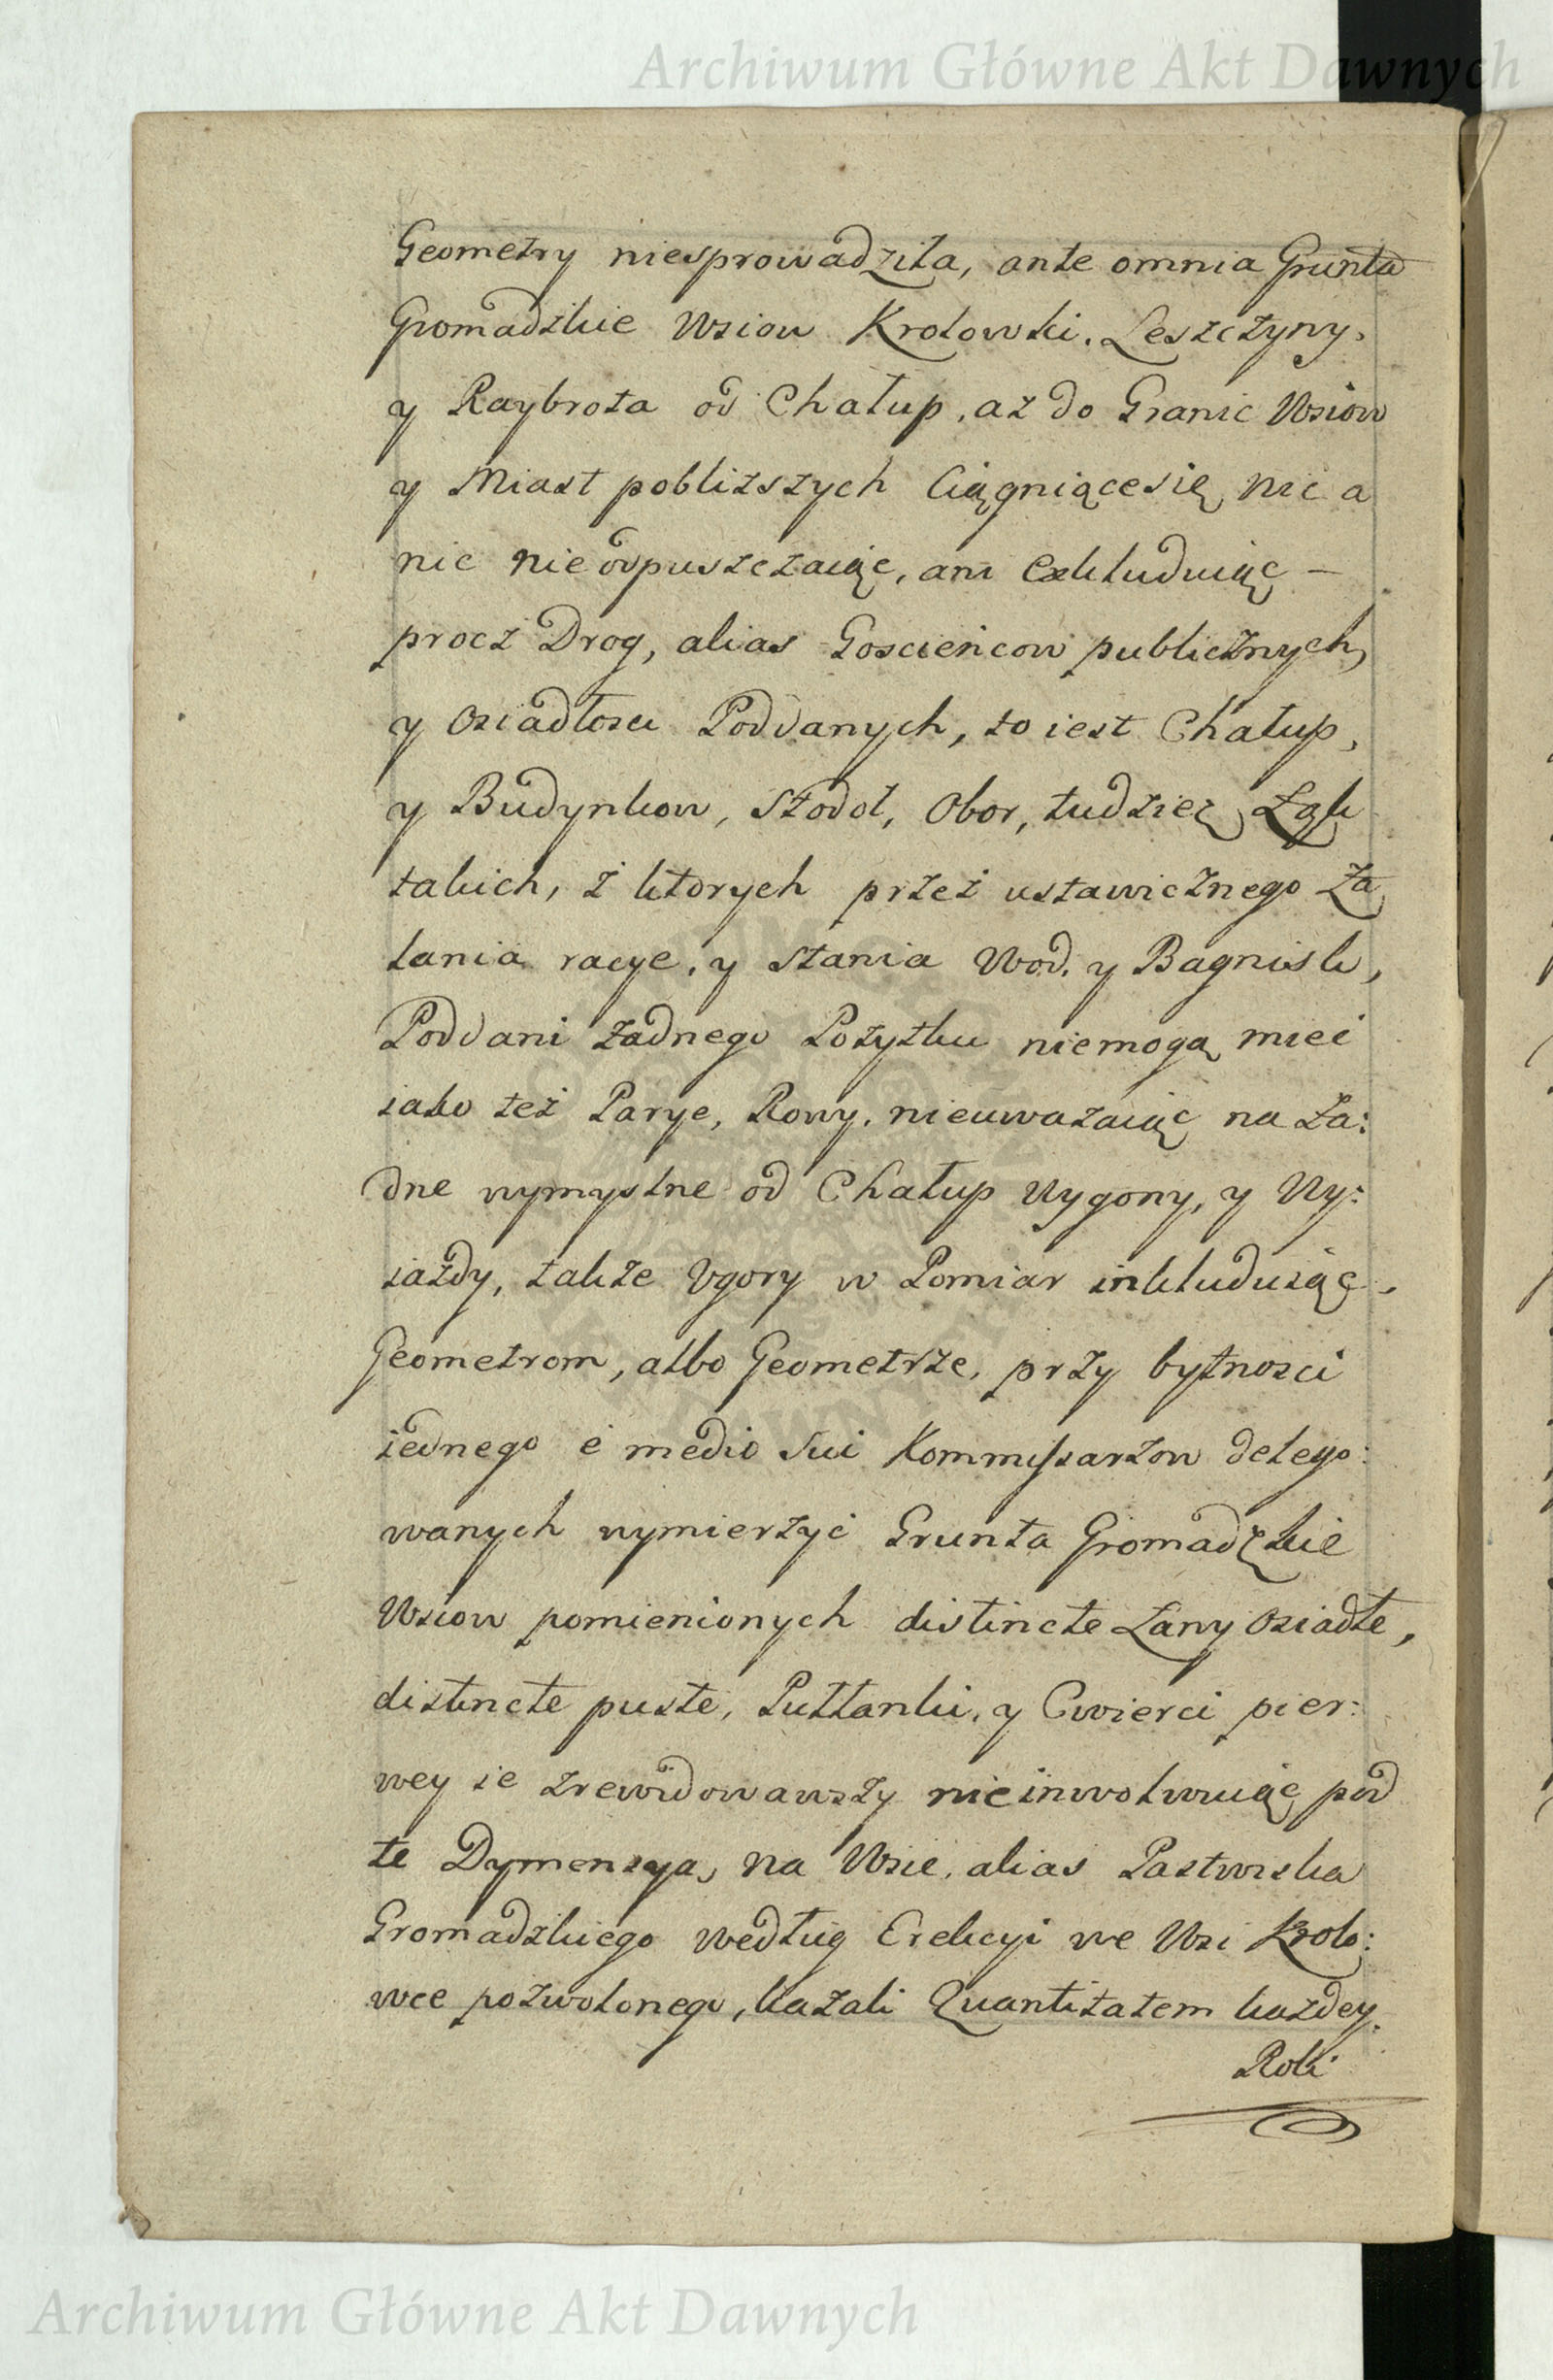 Archiwum Główne Akt Dawnych
Geometry niesprowadziła, ante omnia Grunta
Gromadzkie Wsiow Krolowki, Leszczyny,
y Raybrota od Chałup, az do Granic Wsiow
y Miast pobliższych Ciągniącesię nic a
nic nieodpuszczaiąc, ani Exkluduiąc –
procz Drog, alias Goscieńcow publicznych,
y Osiadłosci Poddanych, to iest Chałup,
y Budynkow, Stodoł, Obor, tudzież Łąk
takich, z ktorych przez ustawicznego Za
lania racye, y stania Wod, y Bagnisk,
Poddani żadnego Pożytku niemogą mieć
iako też Parye, Rowy, nieuważaiąc na ża:
dne wymyslne od Chałup Wygony, y Wy:
iazdy, także Ugory w Pomiar inkluduiąc,
Geometrom, albo Geometrze, przy bytnosci
iednego è medio Sui Kommissarzow delego:
wanych wymierzyć Grunta Gromadzkie
Wsiow pomienionych distincte Łany Osiadłe,
distincte puste, Pułłanki, y Cwierci pier:
wey ie zrewidowawszy nieinwolwuiąc pod
te Dymensyą, na Wsie, alias Pastwiska
Gromadzkiego według Erekcyi we Wsi Krolo:
wce pozwolonego, kazali Quantitatem każdey
Roli
Archiwum Główne Akt Dawnych